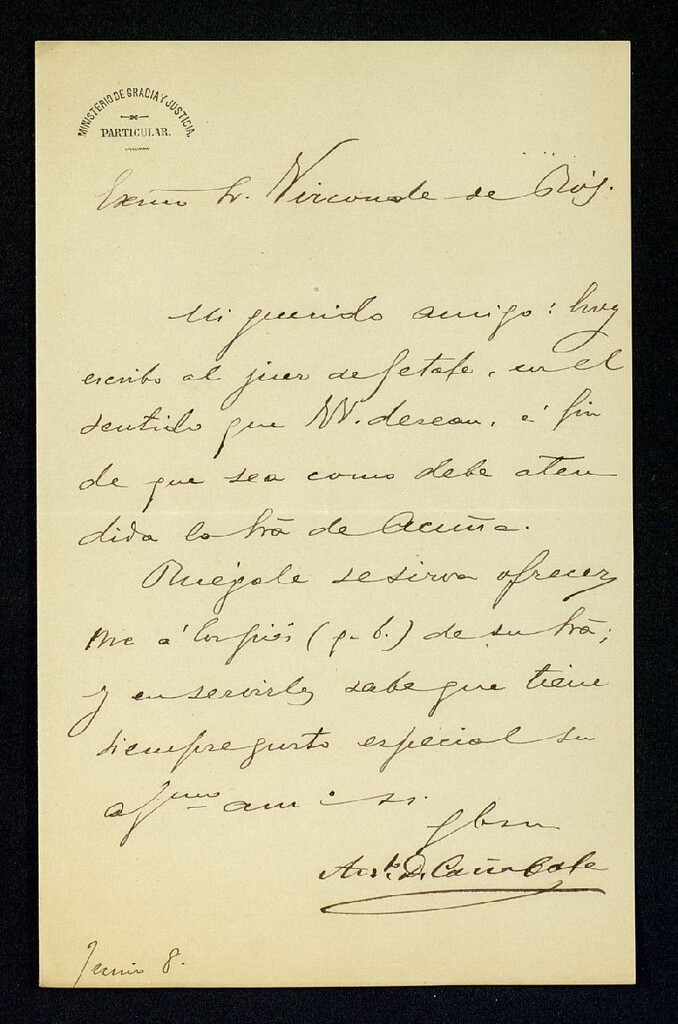 MINISTERIO DE GRACIA Y JUSTICIA.
PARTICULAR.
Exmo Sr. Vizconde de
Mi querido amigo: hoy
escribo al juez de Getafe, en el
sentido que VV. desean, á fin
de que sea como debe aten
dida la Sra de Acuña.
Ruégole se sirva ofrecer
me á los piés (q. b.) de su Sra;
y en servirles sabe que tiene
siempre gusto especial su
afmo am: s. s.
q b s m
Anto. D. Cañabate
Junio 8.